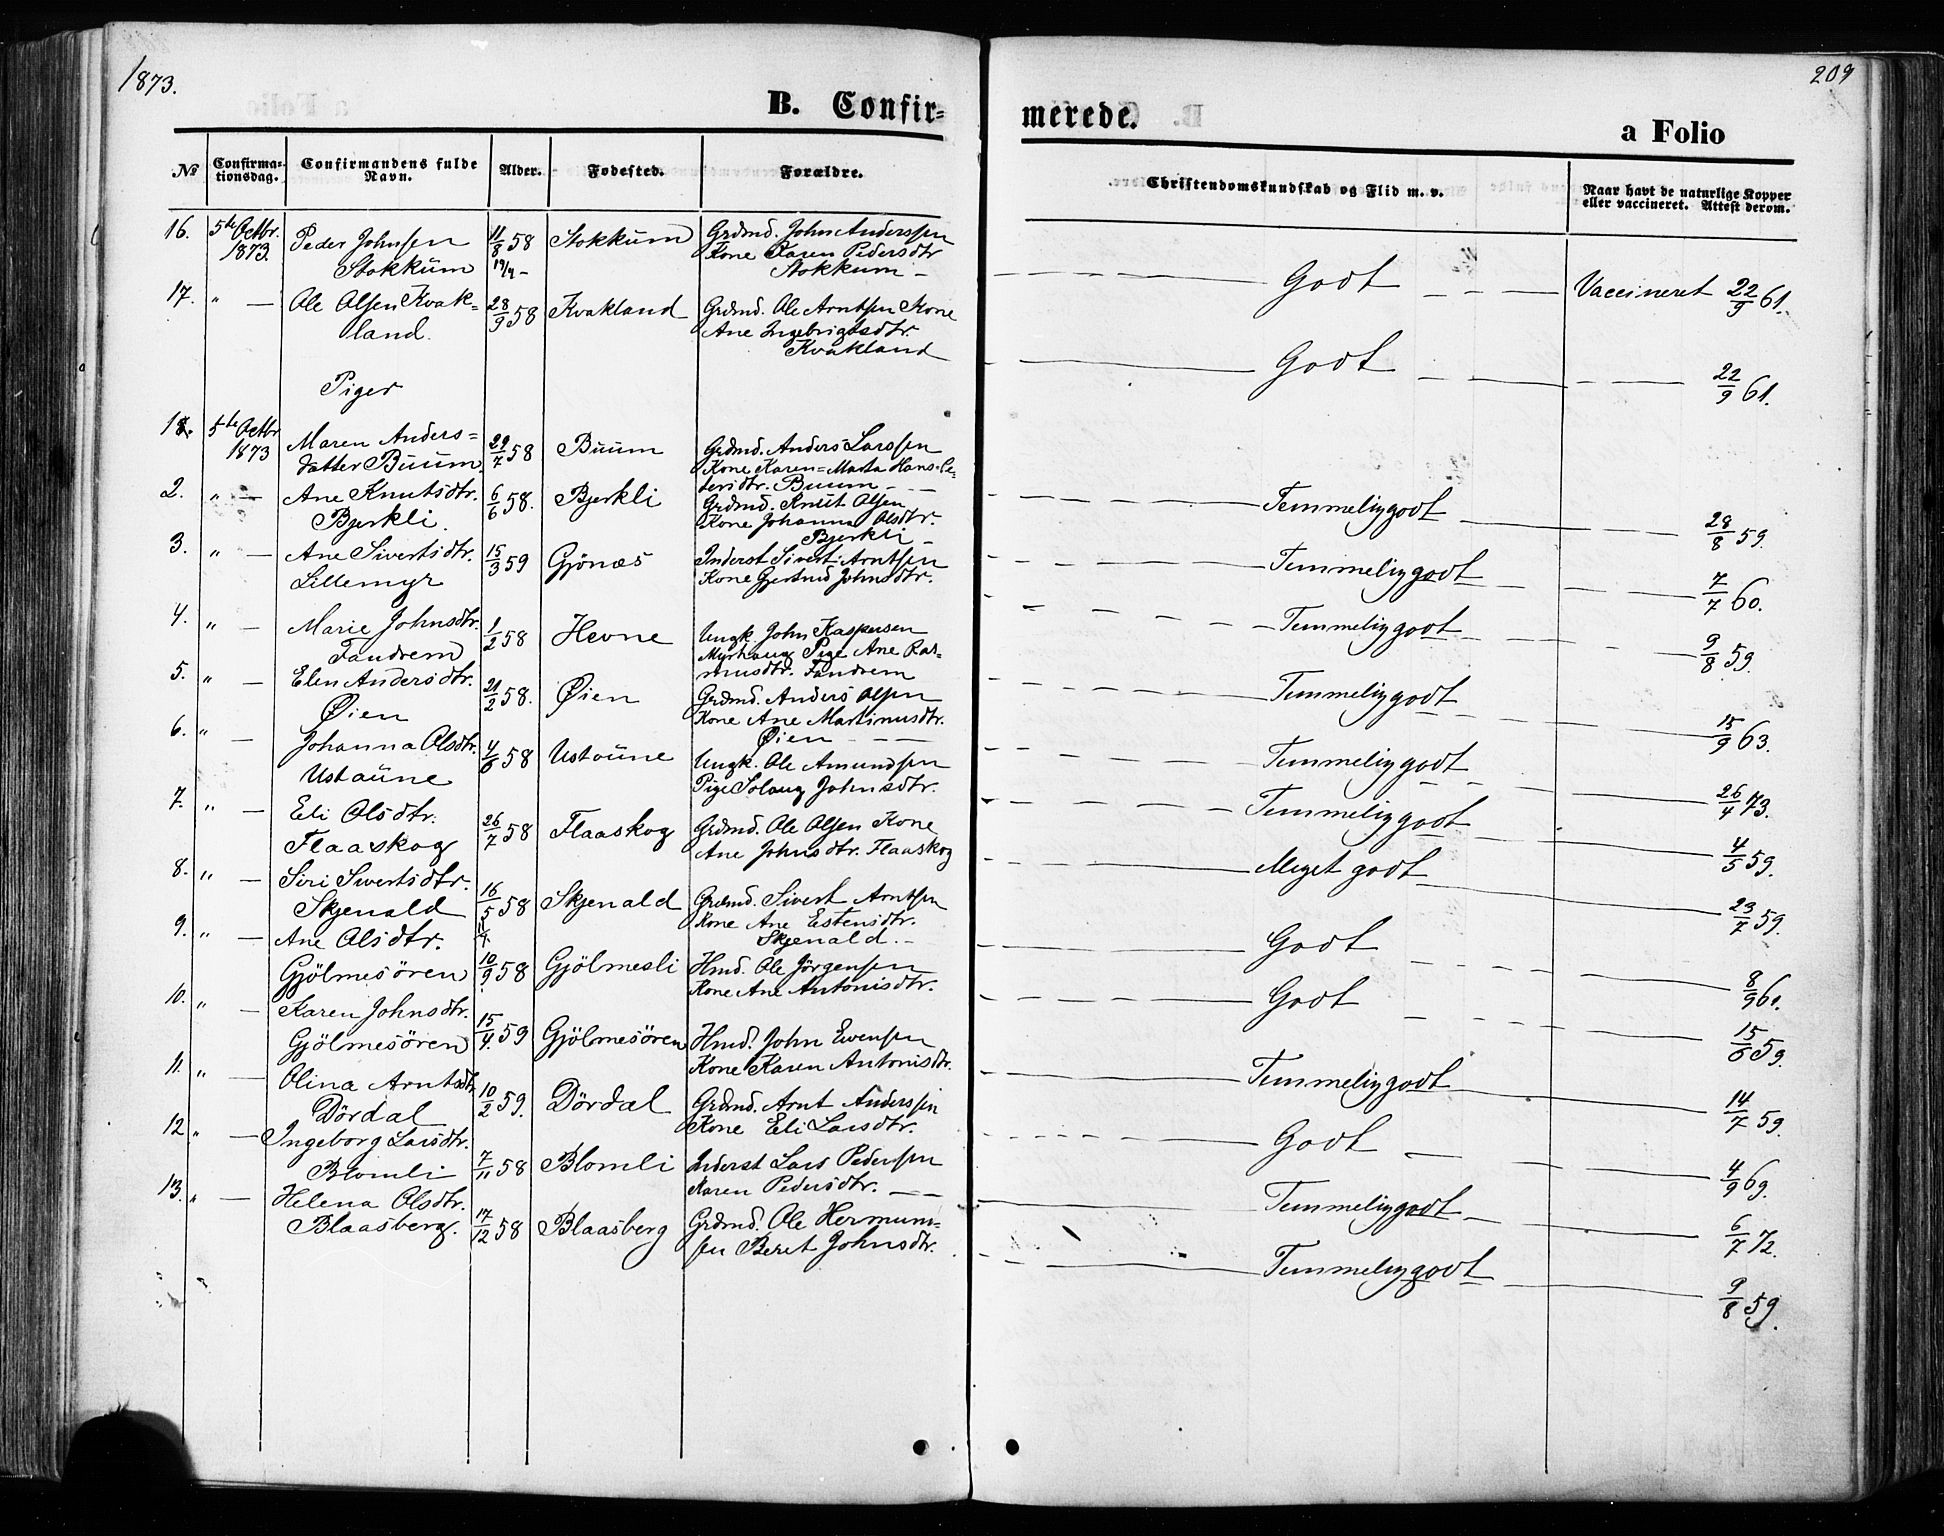 1873.
209
B. Confir=
merede.
a Folio
No
Confirma-
tionsdag.
Confirmandens fulde
Navn.
Alder.
Fødested.
Forældre.
Christendomskundskab og Flid m. v.
Naar havt de naturlige Kopper
eller vaccineret. Attest derom.
16. 5te Octbr. 1873. Peder Johnsen Stokkum 11/8 58 19/4 - Stokkum Grdmd. John Anderssen
Kone Karen Pedersdtr
Stokkum -
Godt Vaccineret 22/9 61.
17. " — Ole Olsen Kvak=
land. 28/9 58 Kvakland Grdmd. Ole Arntsen Kone
Ane Ingebrigtsdtr.
Kvakland
Godt 22/9 61.
Piger
1. 5te Octbr 1873 Maren Anders=
datter Buum. 29/7 58 Buum Grdmd. Anders Larssen
Kone Karen=Marta Hans-Pe-
tersdtr. Buum
Temmelig godt 28/8 59.
2. " — Ane Knutsdtr.
Bjerkli. 6/6 58. Bjerkli Grdmd. Knut Olsen
Kone Johanna Olsdtr.
Bjerkli -
Temmelig godt 7/7 60.
3. " — Ane Sivertsdtr.
Lillemyr 15/3 59 Gjönæs Inderst Sivert Arntsen
Kone Gjertrud Johnsdtr.
Temmelig godt 9/8 59.
4. " — Marie Johnsdtr.
Fandrem 1/2 58 Hevne Ungk. John Kaspersen
Myrhaug Pige Ane Ras=
musdtr. Fandrem
Temmelig godt 15/9 63.
5. " — Elen Andersdtr.
Øien 21/2 58. Øien Grdmd. Anders Olsen
Kone Ane Martinusdtr.
Øien
Temmelig godt 26/4 73.
6. " — Johanna Olsdtr.
Ustaune 4/6 58 Ustaune Ungk. Ole Amundsen
Pige Solaug Johnsdtr.
Temmelig godt 4/5 59.
7. " — Eli Olsdtr.
Flaaskog 26/7 58 Flaaskog Grdmd. Ole Olsen Kone
Ane Johnsdtr. Flaaskog
Meget godt 23/7 59.
8. " — Siri Sivertsdtr.
Skjenald 16/5 58 Skjenald Grdmd. Sivert Arntsen
Kone Ane Estensdtr.
Skjenald. -
Godt 8/9 60.
9. " — Ane Olsdtr.
Gjölmesören 10/9 58 Gjölmesli Hmd. Ole Jörgensen
Kone Ane Antonisdtr.
Godt 15/6 59.
10. " — Karen Johnsdtr.
Gjölmesören 15/4 59 Gjölmesören Hmd. John Evensen
Kone Karen Antonisdtr.
Temmelig godt 14/7 59.
11. " — Olina Arntsdtr.
Dördal 10/2 59. Dördal Grdmd. Arnt Anderssen
Kone Eli Larsdtr.
Godt 4/9 69.
12 " — Ingeborg Larsdtr.
Blomli 7/11 58 Blomli Inderst Lars Pedersen
Karen Pedersdtr.
Temmelig godt 6/7 72.
13. " — Helena Olsdtr.
Blaasberg. 17/12 58 Blaasberg Grdmd. Ole Hermun=
sen Beret Johnsdtr.
Temmelig godt 9/8 59.